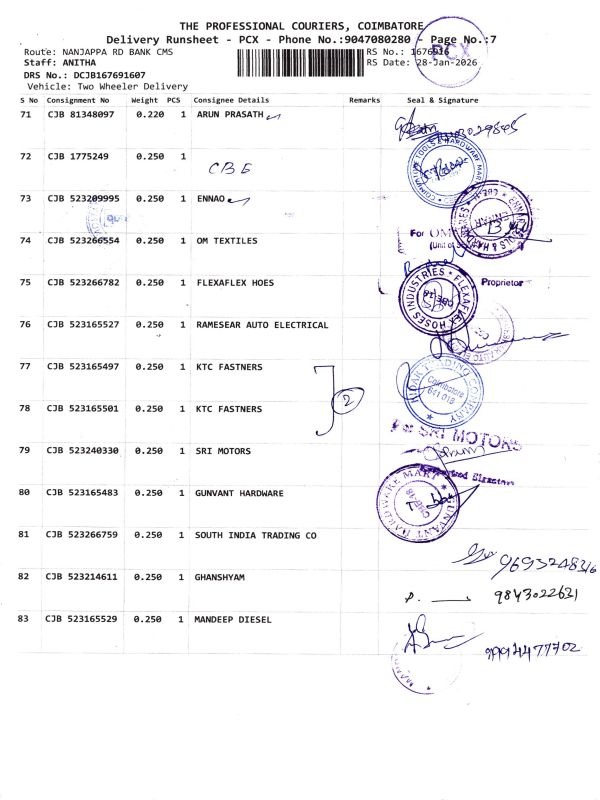 THE PROFESSIONAL COURIERS, COIMBATORE
Delivery Runsheet - PCX - Phone No.:9047080280 - Page No.:7
Route: NANJAPPA RD BANK CMS
RS No.: 1676916
Staff: ANITHA
RS Date: 28-Jan-2026
DRS No.: DCJB167691607
Vehicle: Two Wheeler Delivery
PCX
S No Consignment No Weight PCS Consignee Details Remarks Seal & Signature
71 CJB 81348097 0.220 1 ARUN PRASATH
72 CJB 1775249 0.250 1
CBE
73 CJB 523209995 0.250 1 ENNAO
74 CJB 523266554 0.250 1 OM TEXTILES
For OM
75 CJB 523266782 0.250 1 FLEXAFLEX HOES
Proprietor
FLEXAFLEX HOSES INDUSTRIES
76 CJB 523165527 0.250 1 RAMESEAR AUTO ELECTRICAL
77 CJB 523165497 0.250 1 KTC FASTNERS
2
TRADING COMPANY
Coimbatore
641 018
78 CJB 523165501 0.250 1 KTC FASTNERS
For SRI MOTORS
79 CJB 523240330 0.250 1 SRI MOTORS
80 CJB 523165483 0.250 1 GUNVANT HARDWARE
GUNVANT HARDWARE MART
81 CJB 523266759 0.250 1 SOUTH INDIA TRADING CO
82 CJB 523214611 0.250 1 GHANSHYAM
9843022631
83 CJB 523165529 0.250 1 MANDEEP DIESEL
9994477702